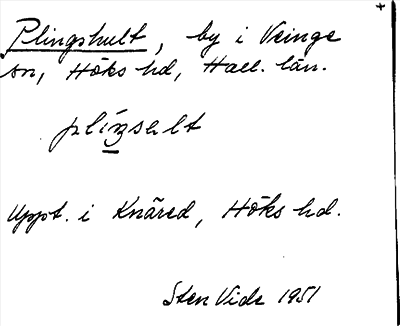 Plingshult, by i Veinge
sn, Höks hd, Hall. län.
plíŋsalt
Uppt. i Knäred, Höks hd.
Sten Vide 1951